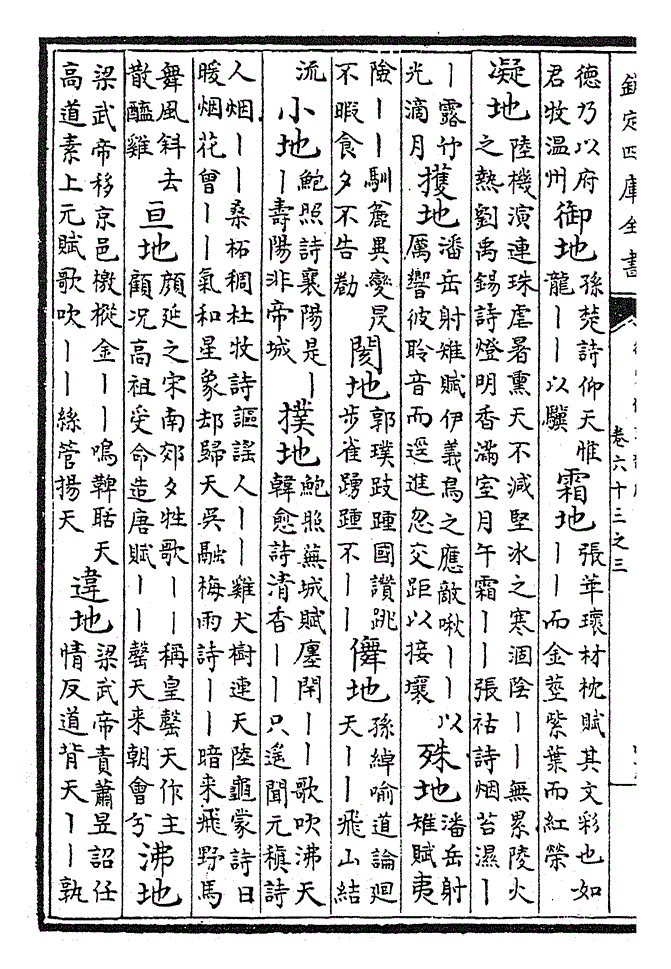 欽定四庫全書
卷六十三之三
德乃以府君牧温州 御地 孫楚詩仰天惟龍丨丨以驥 霜地 張華瓌材枕賦其文彩也如丨丨而金莖紫葉而紅榮
凝地 陸機演連珠虐暑熏天不減堅冰之寒涸陰丨丨無累陵火之熱劉禹錫詩燈明香滿室月午霜丨丨張祜詩烟苔濕丨
丨露竹光滴月 擭地 潘岳射雉賦伊義鳥之應敵啾丨丨以厲響彼聆音而逕進忽交距以接壤 殊地 潘岳射雉賦夷
險丨丨馴麄異變昃不暇食夕不告勌 閡地 郭璞跂踵國讚跳步雀踴踵不丨丨 僢地 孫綽喻道論迴天丨丨飛山結
流 小地 鮑照詩襄陽是丨丨壽陽非帝城 撲地 鮑照蕪城賦廛閈丨丨歌吹沸天韓愈詩清香丨丨只遥聞元稹詩
人烟丨丨桑柘稠杜牧詩謳謡人丨丨雞犬樹連天陸龜蒙詩日暖烟花曾丨丨氣和星象却歸天吳融梅雨詩丨丨暗来飛野馬
舞風斜去散醯雞 亘地 顔延之宋南郊夕牲歌丨丨稱皇罄天作主顧况高祖受命造唐賦丨丨罄天来朝會兮 沸地
梁武帝移京邑檄摐金丨丨鳴鞞聒天高道素上元賦歌吹丨丨絲管揚天 違地 梁武帝責蕭昱詔任情反道背天丨丨孰